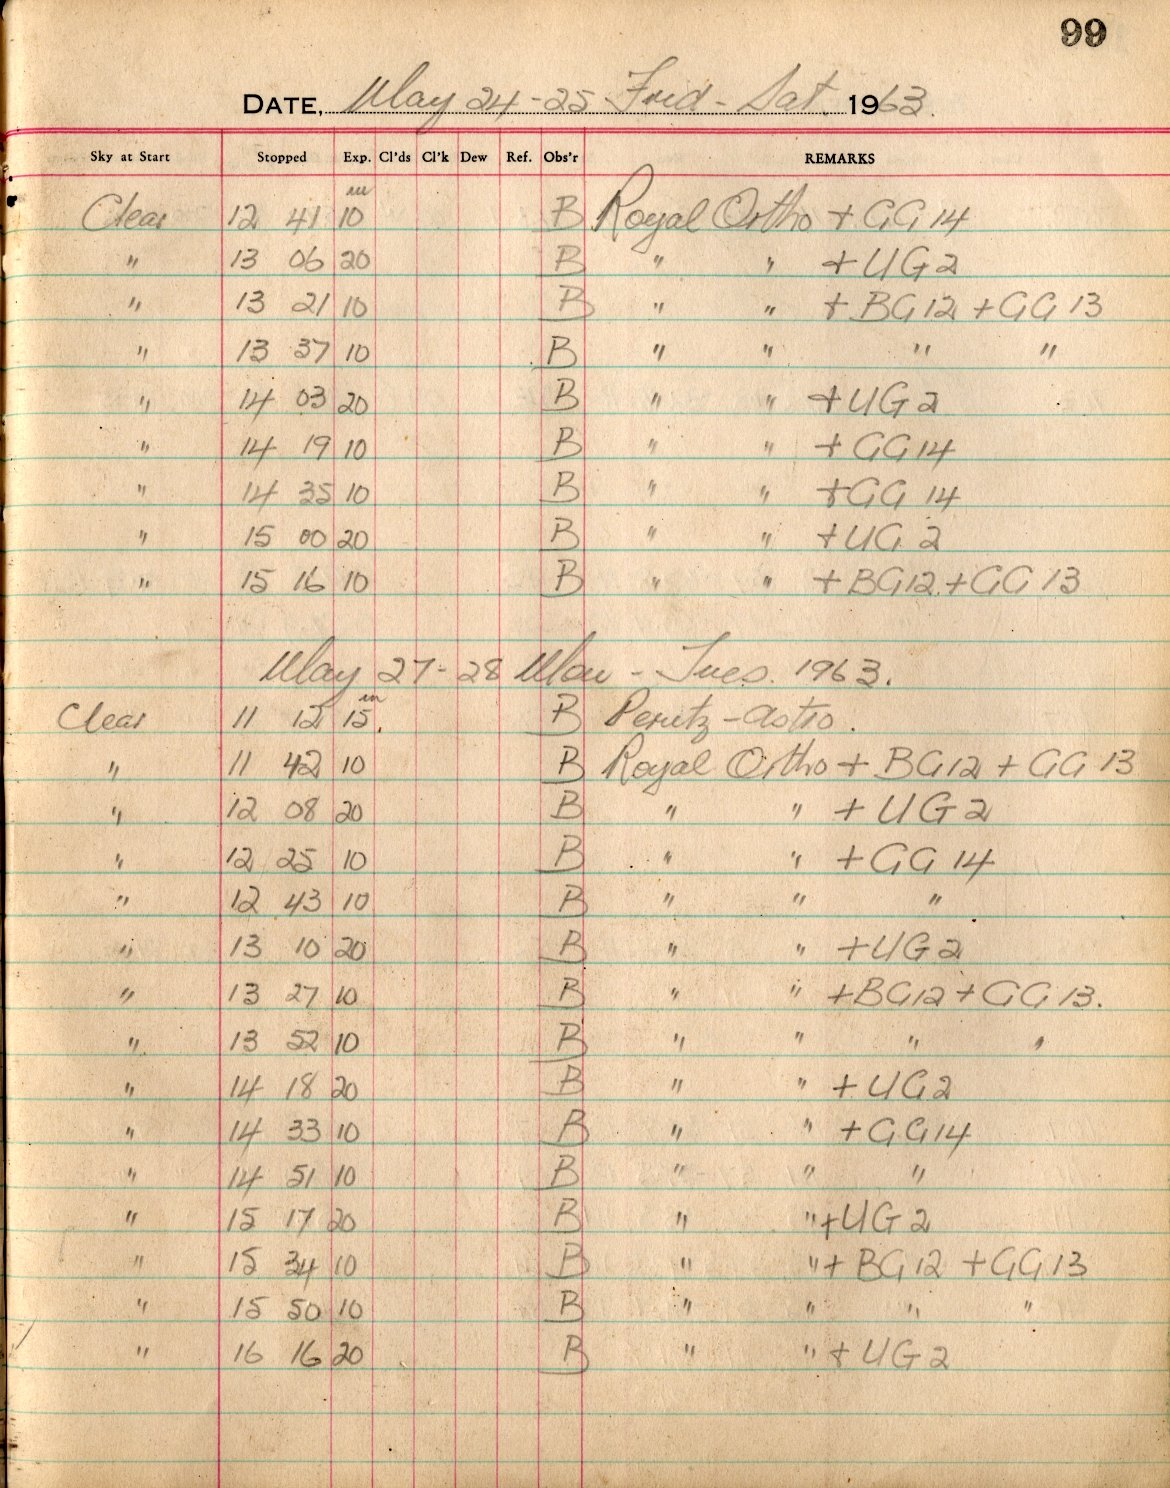 99
DATE, May 24-25 Frid - Sat. 1963.
Sky at Start Stopped Exp. Cl'ds Cl'k Dew Ref. Obs'r REMARKS
Clear 12 41 10m B Royal Ortho + GG 14
" 13 06 20 B " " + UG 2
" 13 21 10 B " " + BG 12 + GG 13
" 13 37 10 B " " " "
" 14 03 20 B " " + UG 2
" 14 19 10 B " " + GG 14
" 14 35 10 B " " + GG 14
" 15 00 20 B " " + UG 2
" 15 16 10 B " " + BG 12 + GG 13
May 27-28 Mon - Tues. 1963.
Clear 11 12 15m. B Perutz - Astro.
" 11 42 10 B Royal Ortho + BG 12 + GG 13
" 12 08 20 B " " + UG 2
" 12 25 10 B " " + GG 14
" 12 43 10 B " " "
" 13 10 20 B " " + UG 2
" 13 27 10 B " " + BG 12 + GG 13.
" 13 52 10 B " " " "
" 14 18 20 B " " + UG 2
" 14 33 10 B " " + GG 14
" 14 51 10 B " " "
" 15 17 20 B " " + UG 2
" 15 34 10 B " " + BG 12 + GG 13
" 15 50 10 B " " " "
" 16 16 20 B " " + UG 2